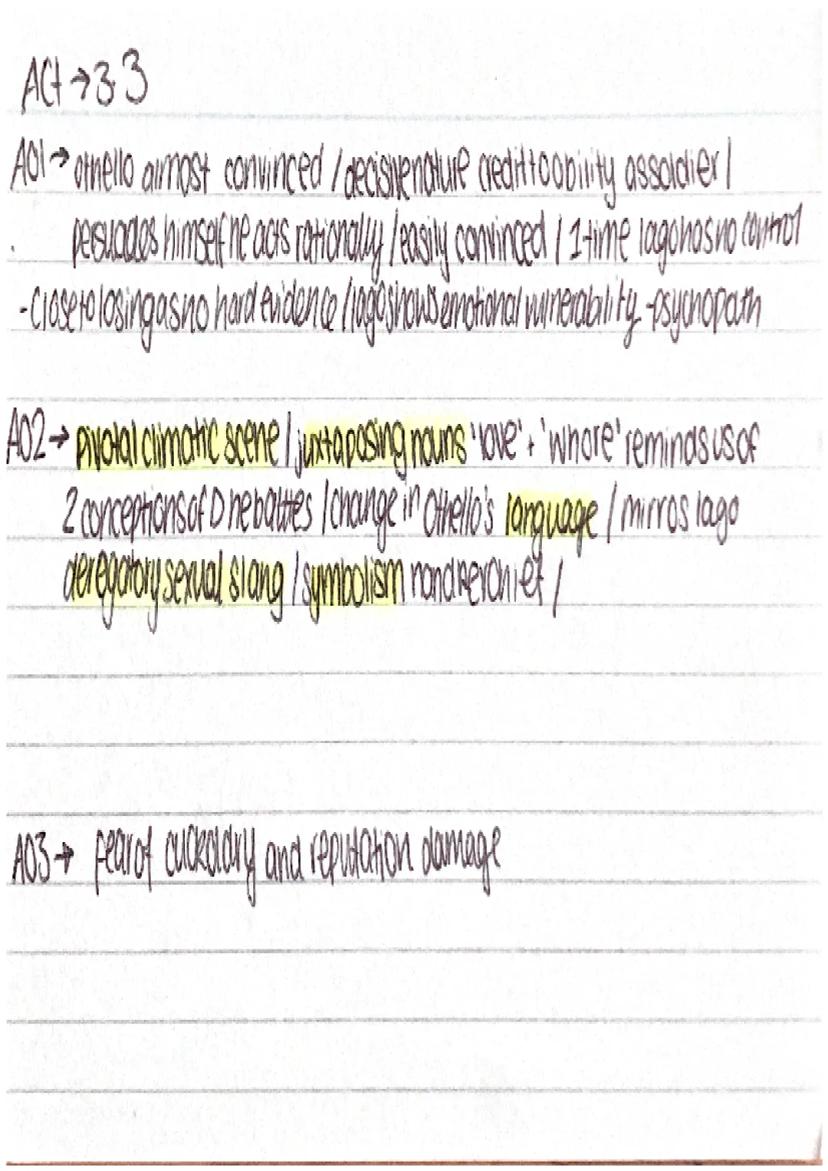 Act → 3.3
AO1 → Othello almost convinced / decisive nature credit to ability as soldier /
persuades himself he acts rationally / easily convinced / 1 time Iago has no control
- close to losing as no hard evidence / Iago shows emotional vulnerability - psychopath
AO2 → pivotal climatic scene / juxtaposing nouns 'love' + 'whore' reminds us of
2 conceptions of D he battles / change in Othello's language / mirros Iago
deregatory sexual slang / symbolism handkerchief /
AO3 → fear of cuckoldry and reputation damage